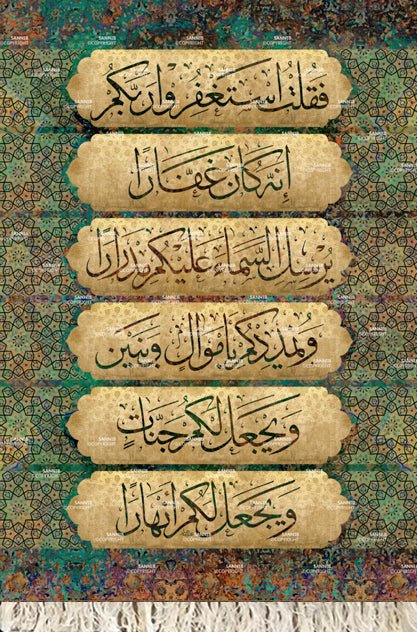 فَقُلْتُ اسْتَغْفِرُوا رَبَّكُمْ
إِنَّهُ كَانَ غَفَّارًا
يُرْسِلِ السَّمَاءَ عَلَيْكُمْ مِدْرَارًا
وَيُمْدِدْكُمْ بِأَمْوَالٍ وَبَنِينَ
وَيَجْعَلْ لَكُمْ جَنَّاتٍ
وَيَجْعَلْ لَكُمْ أَنْهَارًا
SANN18
©COPYRIGHT